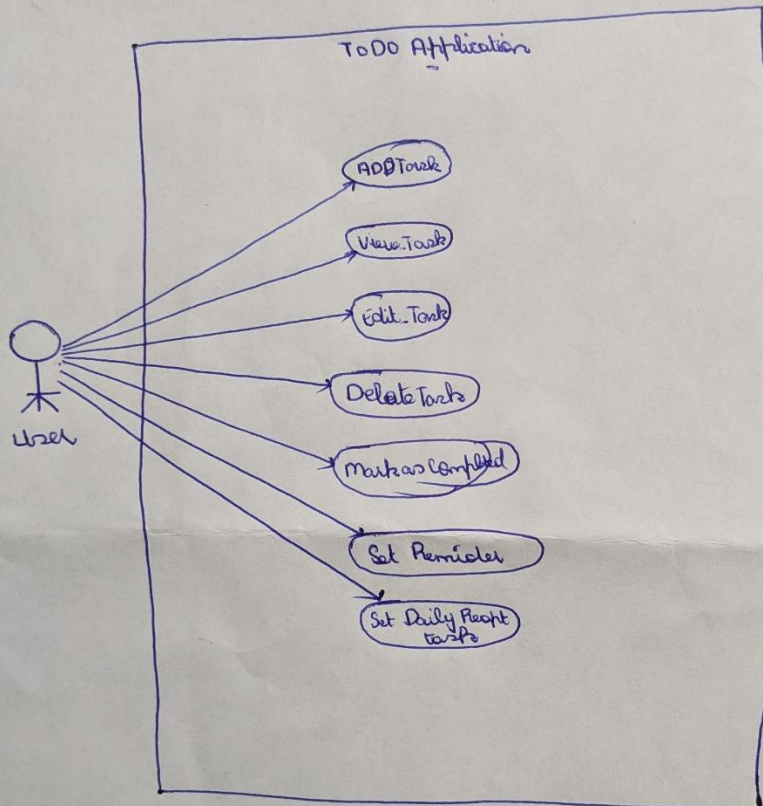 ToDO Application
ADDTask
View_Task
Edit_Task
DeleteTask
MarkasCompleted
User
Set Remider
Set Daily Reapt
task